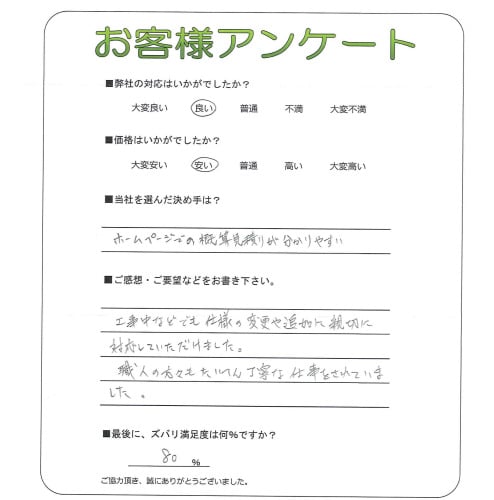 お客様アンケート
■弊社の対応はいかがでしたか？
大変良い 良い 普通 不満 大変不満
■価格はいかがでしたか？
大変安い 安い 普通 高い 大変高い
■当社を選んだ決め手は？
ホームページでの概算見積りが分かりやすい
■ご感想・ご要望などをお書き下さい。
工事中などでも仕様の変更や追加に親切に
対応していただけました。
職人の方々もたいへん丁寧な仕事をされていま
した。
■最後に、ズバリ満足度は何％ですか？
80 ％
ご協力頂き、誠にありがとうございました。